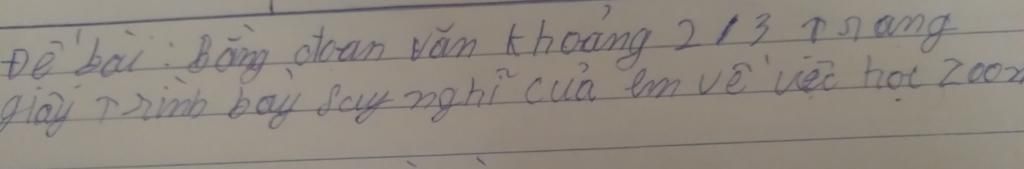 Đề bài: Bằng đoan văn khoảng 2/3 trang
giấy trình bày suy nghĩ của em về việc học zoom